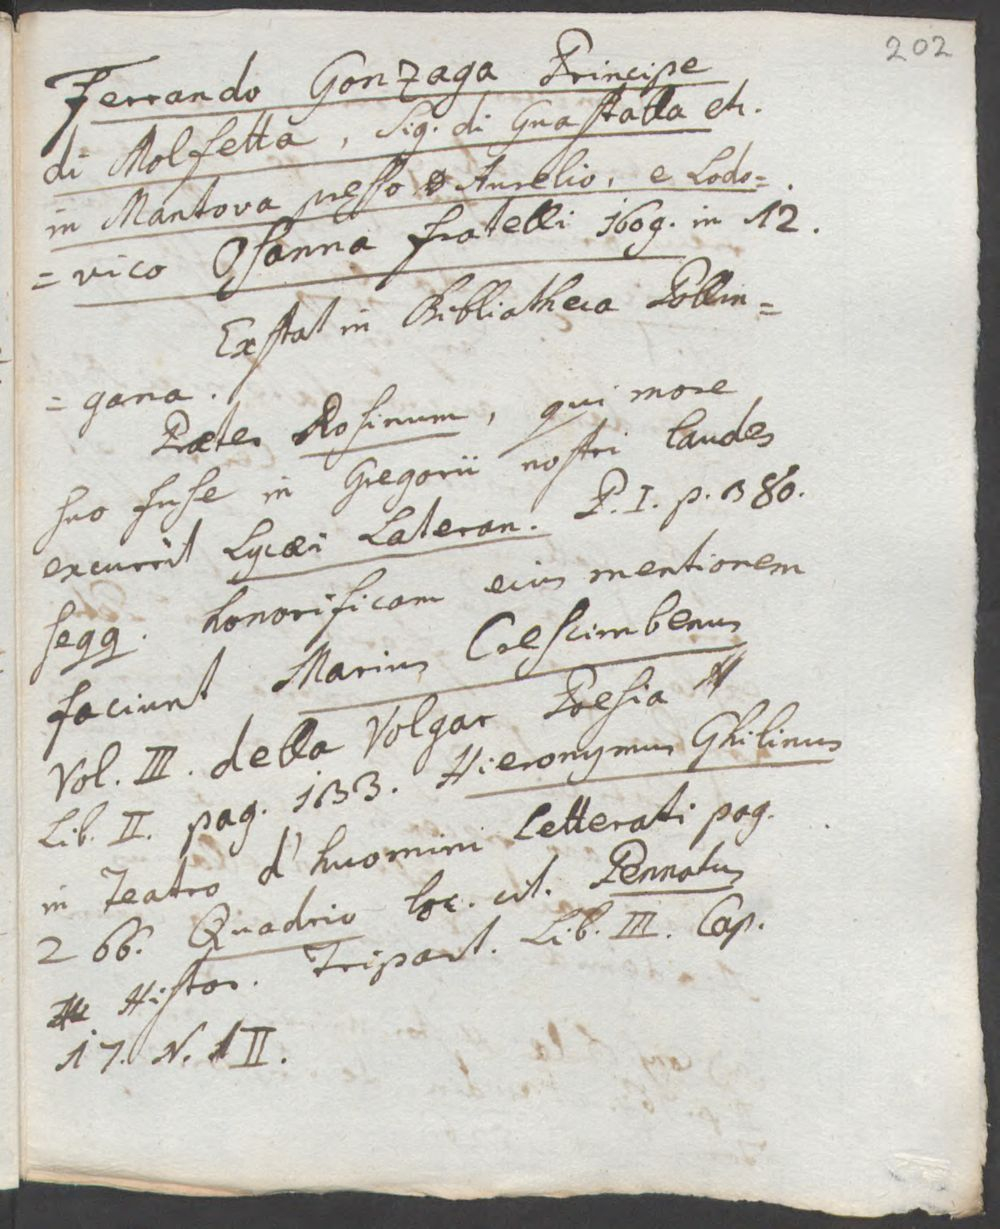 202
Ferrando Gonzaga Principe
di Molfetta, Sig. di Guastalla etc.
in Mantova presso Aurelio, e Lodo=
=vico Osanna fratelli 1609. in 12.
Exstat in Bibliotheca Pollin=
=gana.
Præter Rosinum, qui more
suo fuse in Gregorii nostri laudes
excurrit Lycæi Lateran. P. I. p. 380.
seqq. honorificam eius mentionem
faciunt Marius Crescimbenus
Vol. III. della Volgar Poesia
Lib. II. pag. 133. Hieronymus Ghilinus
in Teatro d'huomini Letterati pag.
266. Quadrio loc. cit. Pennotus
Histor. Tripart. Lib. III. Cap.
17. N. II.